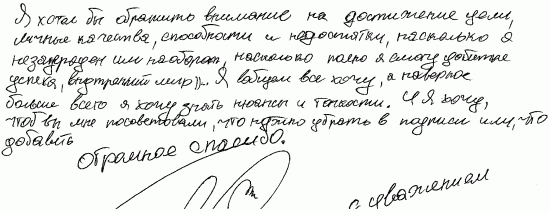 Я хотел бы обратить внимание на достижение цели,
личные качества, способности и недостатки, насколько я
незауряден или наоборот, насколько полно я смогу добиться
успеха, внутренний мир)).. Я вобщем все хочу, а наверное
больше всего я хочу знать нюансы и тонкости. И Я хочу,
чтоб вы мне посоветовали, что нужно убрать в подписи или, что
добавить
Огромное спасибо.
с уважением